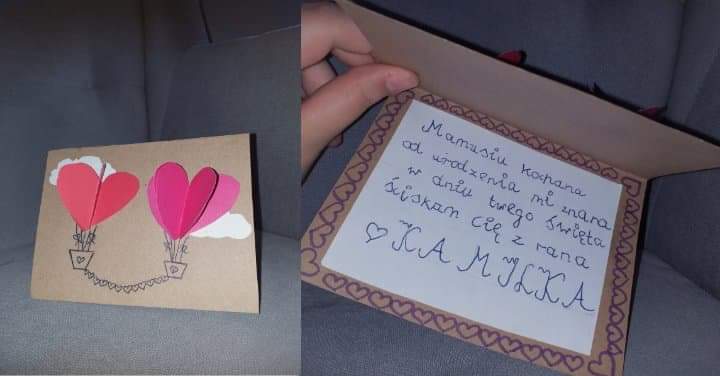 Mamusiu kochana
od urodzenia mi znana
w dniu twego święta
ściskam Cię z rana
♡ KAMILKA